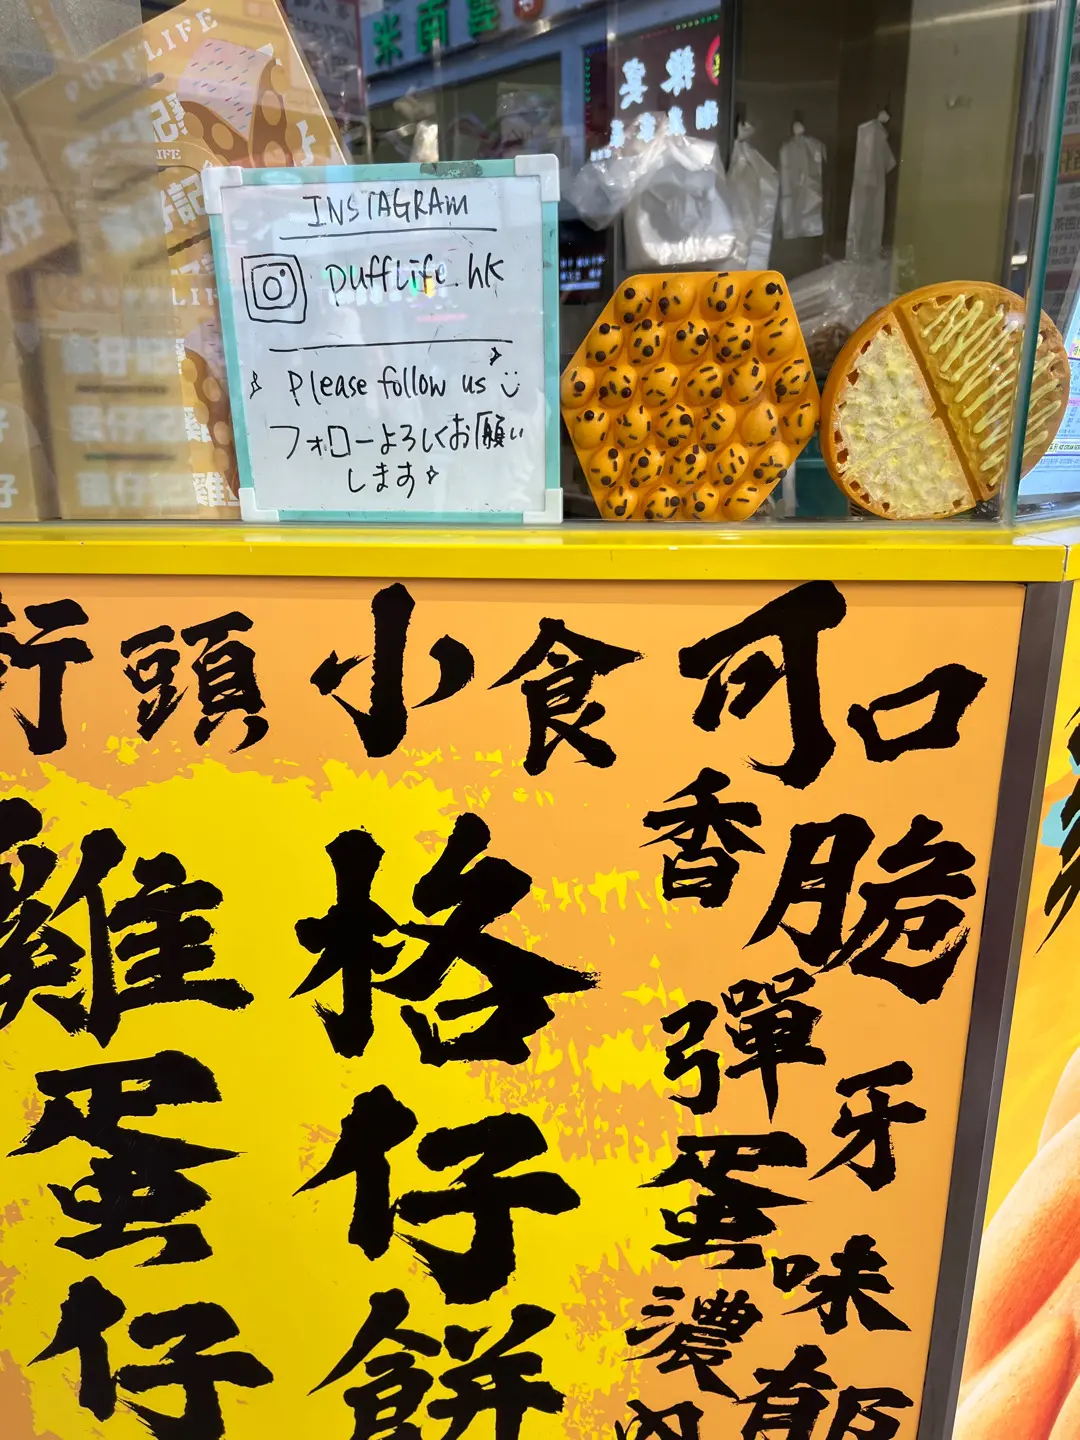 PUFFLIFE
米南昌
INSTAGRAM
PUffLife.hk
Please follow us
フォローよろしくお願い
します
街頭小食可口
雞蛋仔
格仔餅
香脆
彈牙
蛋味
濃郁